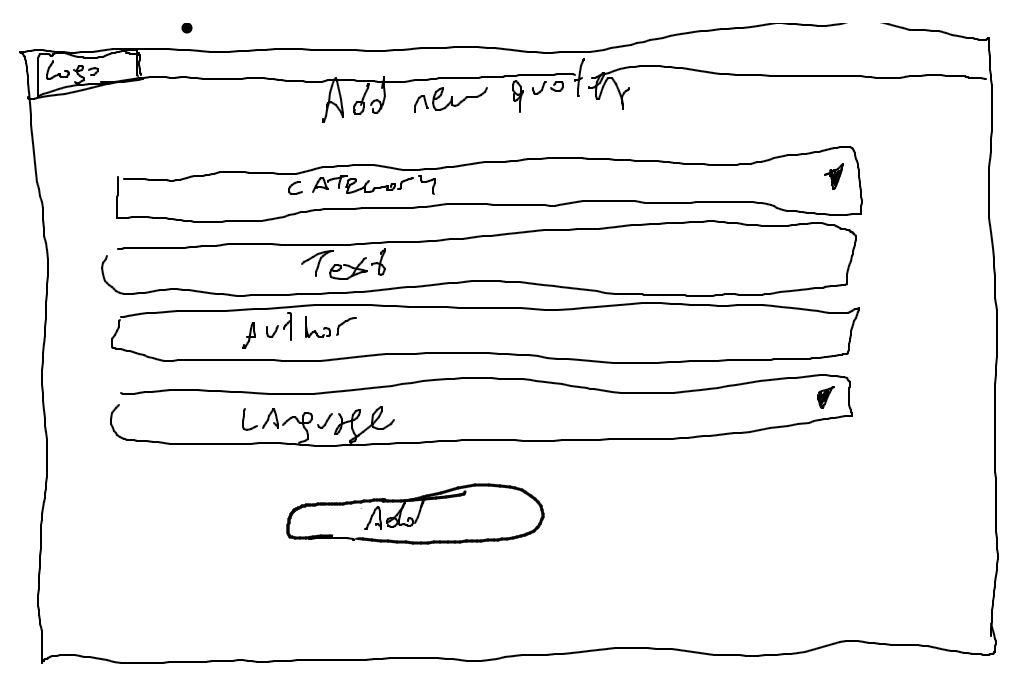 Logo
Add new quotes
CATEGORY
Text
Author
LAnguage
Add